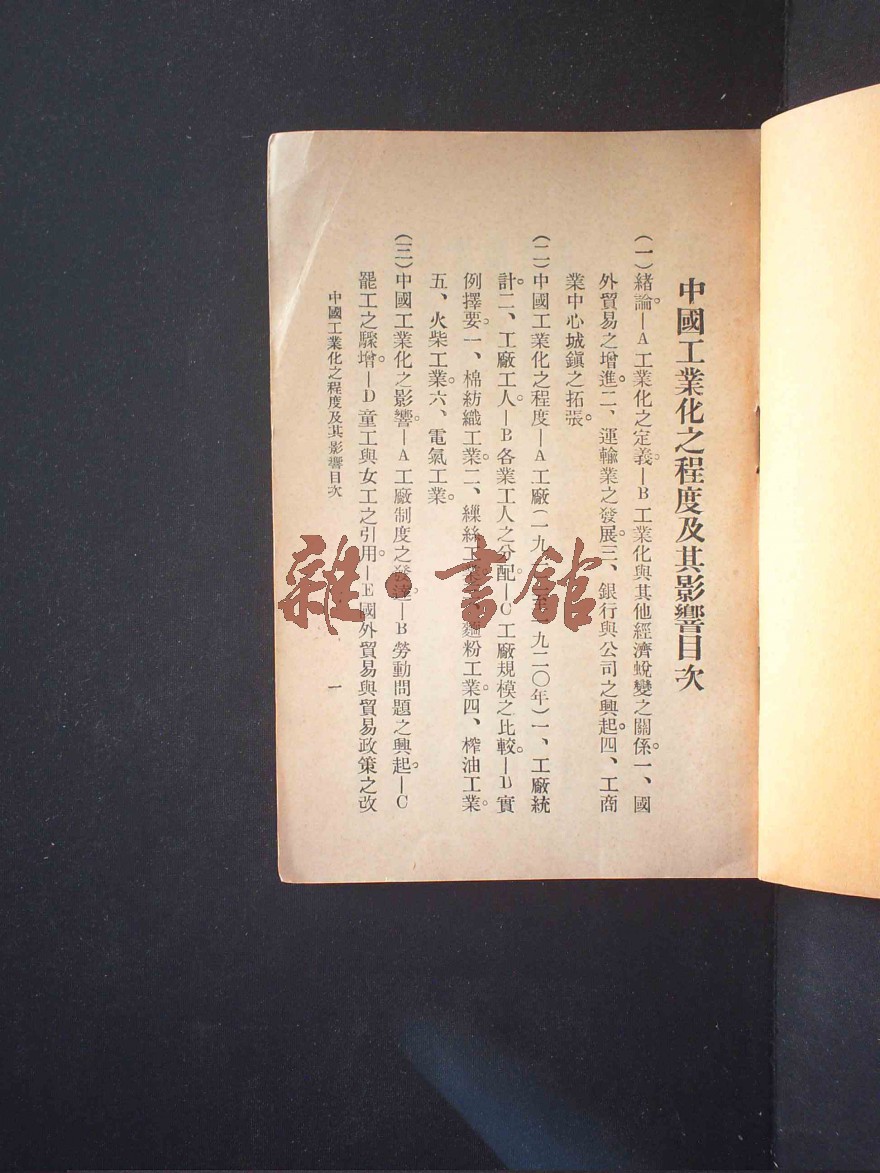 中國工業化之程度及其影響目次
(一)緒論。—A工業化之定義。—B工業化與其他經濟蛻變之關係。一、國
外貿易之增進。二、運輸業之發展。三、銀行與公司之興起。四、工商
業中心城鎮之拓張。
(二)中國工業化之程度—A工廠(一九一二至一九二〇年)一、工廠統
計。二、工廠工人。—B各業工人之分配。—C工廠規模之比較。—D實
例擇要。一、棉紡織工業。二、繅絲工業。三、麵粉工業。四、榨油工業。
五、火柴工業。六、電氣工業。
(三)中國工業化之影響。—A工廠制度之發達。—B勞動問題之興起。—C
罷工之驟增。—D童工與女工之引用。—E國外貿易與貿易政策之改
中國工業化之程度及其影響目次
一
雜·書館